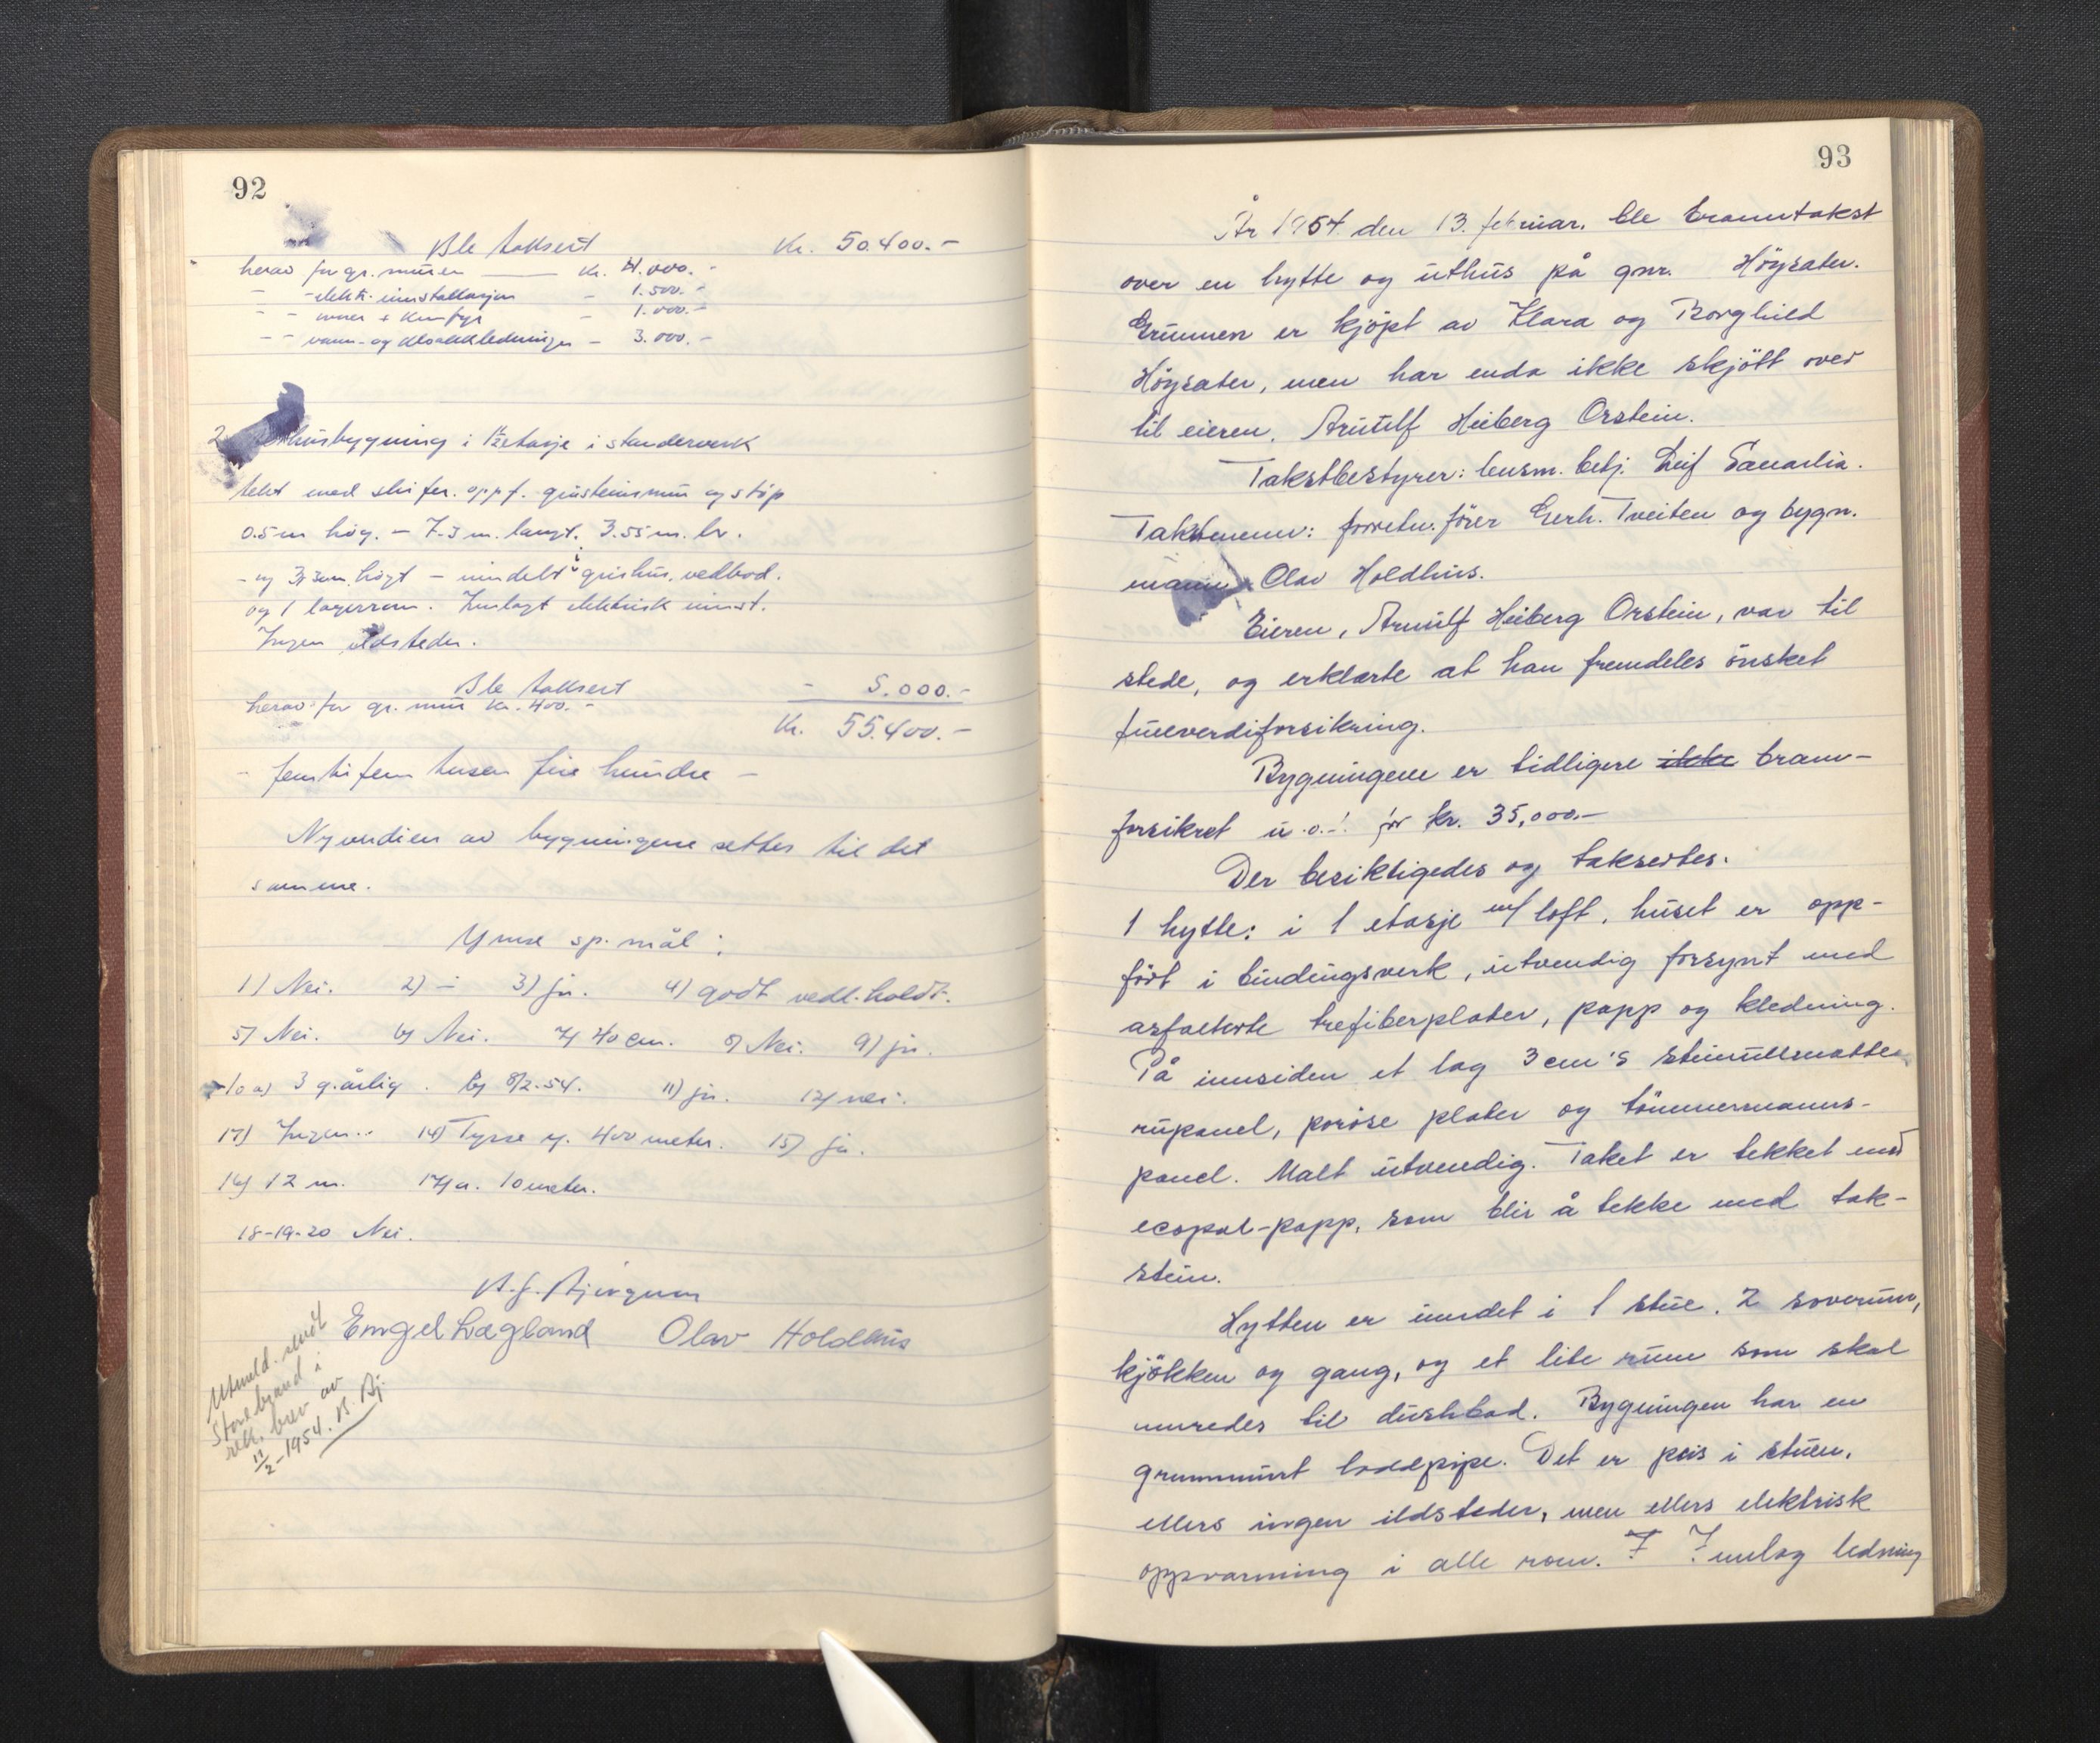 92
Ble taksert Kr. 50.400.-
herav for gr. muren — kr. 4.000.-
- - elektr. innstallasjon - 1.500.-
- - ovner + komfyr - 1.000.-
- - vann- og kloakkledninger - 3.000.-
2 uthusbygning i 1½ etasje i standerverk
tekt med skifer. oppf. gråsteinsmur og støp
0.5 m høg. - 7.3 m. langt. 3.55 m. br.
- og høgt - inndelt i grishus, vedbod.
og 1 lagerrom. Innlagt elektrisk innst.
Ingen ildsteder.
Ble taksert - 5.000.-
herav for gr. mur kr. 400.-
Kr. 55.400.-
- femti fem tusen fire hundre -
Nyverdien av bygningene settes til det
samme.
Ymse sp. mål:
1) Nei. 2) - 3) ja. 4) godt vedl.holdt.
5) Nei. 6) Nei. 7) 40 cm. 8) Nei. 9) ja.
10 a) 3 g. årlig. b) 8/2-54. 11) ja. 12) nei.
13) Ingen.. 14) Tysse og. 400 meter. 15) ja.
16) 12 m. 17) a. 10 meter.
18-19-20 Nei.
Engel Lægland Olav Holdhus
Utmeld. sendt
Storebrand i
rek. brev av
11/2-1954. B. Bj.
93
År 1954 den 13. februar. ble branntakst
over en hytte og uthus på gnr. Høysæter.
Grunnen er kjøpt av Klara og Borghild
Høysæter, men har enda ikke skjøtt over
til eieren, Arnulf Heiberg Orstein.
Takstbestyrer: lensm. betj. Leif
Takstmenn: forretn. fører Gerh. Tveiten og bygn.
mann Olav Holdhus.
Eieren, Arnulf Heiberg Orstein, var til
stede, og erklærte at han fremdeles ønsket
fulverdiforsikring.
Bygningene er tidligere ikke brann-
forsikret for kr. 35,000.-
Der besiktigedes og taksertes.
1 hytte: i 1 etasje m/ loft, huset er opp-
ført i bindingsverk, utvendig forsynt med
asfalterte trefiberplater, papp og kledning.
På innsiden et lag 3 cm's steinullmatter
rupanel, porøse plater og tømmermanns-
panel. Malt utvendig. Taket er tekket med
ecopal-papp, som blir å tekke med tak-
stein.
Hytten er innredet i 1 stue, 2 soverum,
kjøkken og gang, og et lite rum som skal
innredes til dushbad. Bygningen har en
grunnmurt loddpipe. Det er peis i stuen,
ellers ingen ildsteder, men ellers elektrisk
oppvarming i alle rom. I Innlag ledning